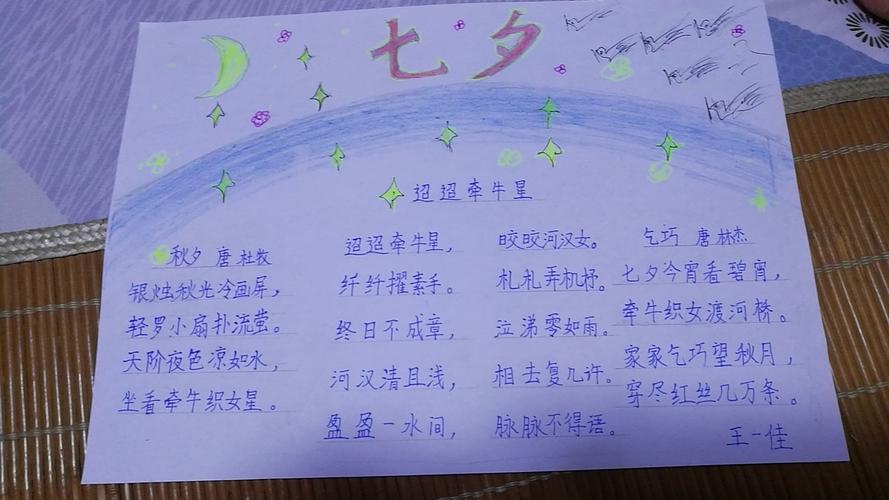 七夕
迢迢牵牛星
秋夕 唐 杜牧
银烛秋光冷画屏，
轻罗小扇扑流萤。
天阶夜色凉如水，
坐看牵牛织女星。
迢迢牵牛星，
皎皎河汉女。
纤纤擢素手。
札札弄机杼。
终日不成章，
泣涕零如雨。
河汉清且浅，
相去复几许。
盈盈一水间，
脉脉不得语。
乞巧 唐 林杰
七夕今宵看碧宵，
牵牛织女渡河桥。
家家乞巧望秋月，
穿尽红丝几万条。
王一佳